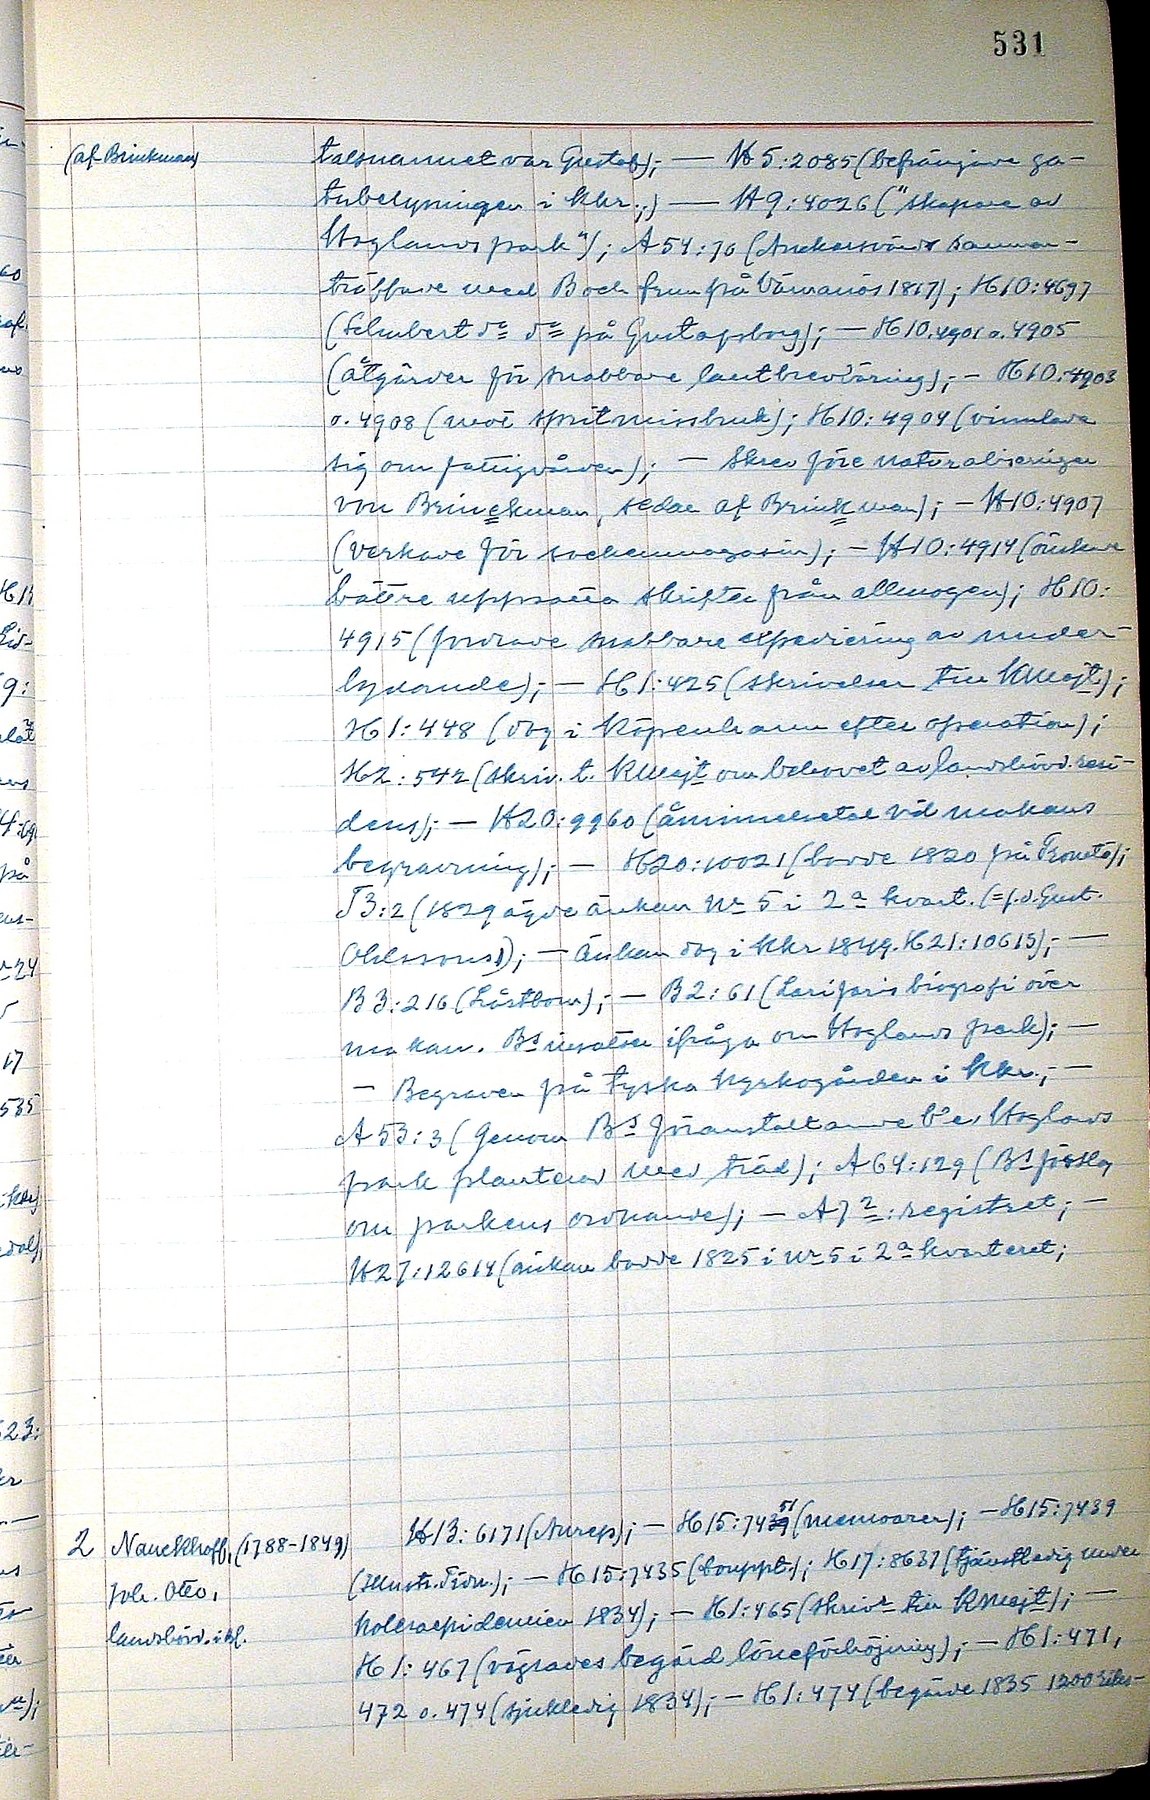 531
(af Brinkman) talsnamnet var Gustaf); — H5:2085 (befrämjare ga-
tubelysningen i Kkr.;) — H9:4026 ("skapare av
Hoglands park"); A54:70 (Anckarsvärds samman-
träffade med B och frun på Värnanäs 1817); H10:4697
(Schubert dº dº på Gustafsborg); — H10:4901 o. 4905
(åtgärder för snabbare lantbrevbäring); — H10:4903
o. 4908 (mot spritmissbruk); H10:4904 (vinnlade
sig om fattigvården); — Skrev före naturaliseringen
von Brinckman, sedan af Brinkman); — H10:4907
(verkade för sockenmagasin); — H10:4914 (önskade
bättre uppsatta skrifter från allmogen); H10:
4915 (fordrade snabbare expediering av under-
lydande); — H1:425 (skrivelser till KMajt);
H1:448 (dog i Köpenhamn efter operation);
H2:542 (skriv. t. KMajt om behovet av landshövd. resi-
dens); — H20:9960 (åminnelsetal vid makans
begravning); — H20:10021 (bodde 1820 på
J3:2 (1829 ägde änkan Nr 5 i 2a kvart. (=f.d. Gust.
Ohlssons)); — änkan dog i Kkr 1849. H21:10615); —
B3:216 (Låstbom); — B2:61 (Larifaris biografi över
makan. Bs insatser ifråga om Hoglands park); —
— Begraven på Tyska kyrkogården i Kkr.; —
A53:3 (Genom Bs föranstaltande blev Hoglands
park planterad med träd); A64:129 (Bs förslag
om parkens ordnande); — A72: registret; —
H27:12614 (änkan bodde 1825 i Nr 5 i 2a kvarteret;
2 Nauckhoff, (1788-1849) H13:6171 (Anrep); — H15:7451 (memoarer); — H15:7439
Joh. Otto, (Illustr. Tidn.); — H15:7435 (souppt.); H17:8637 (tjänstledig under
landshövd. i Bl. koleraepidemien 1834); — H1:465 (skrivr till KMajt); —
H1:467 (vägrades begärd löneförhöjning); — H1:471,
472 o. 474 (sjukledig 1834); — H1:474 (begärde 1835 1200 riks-